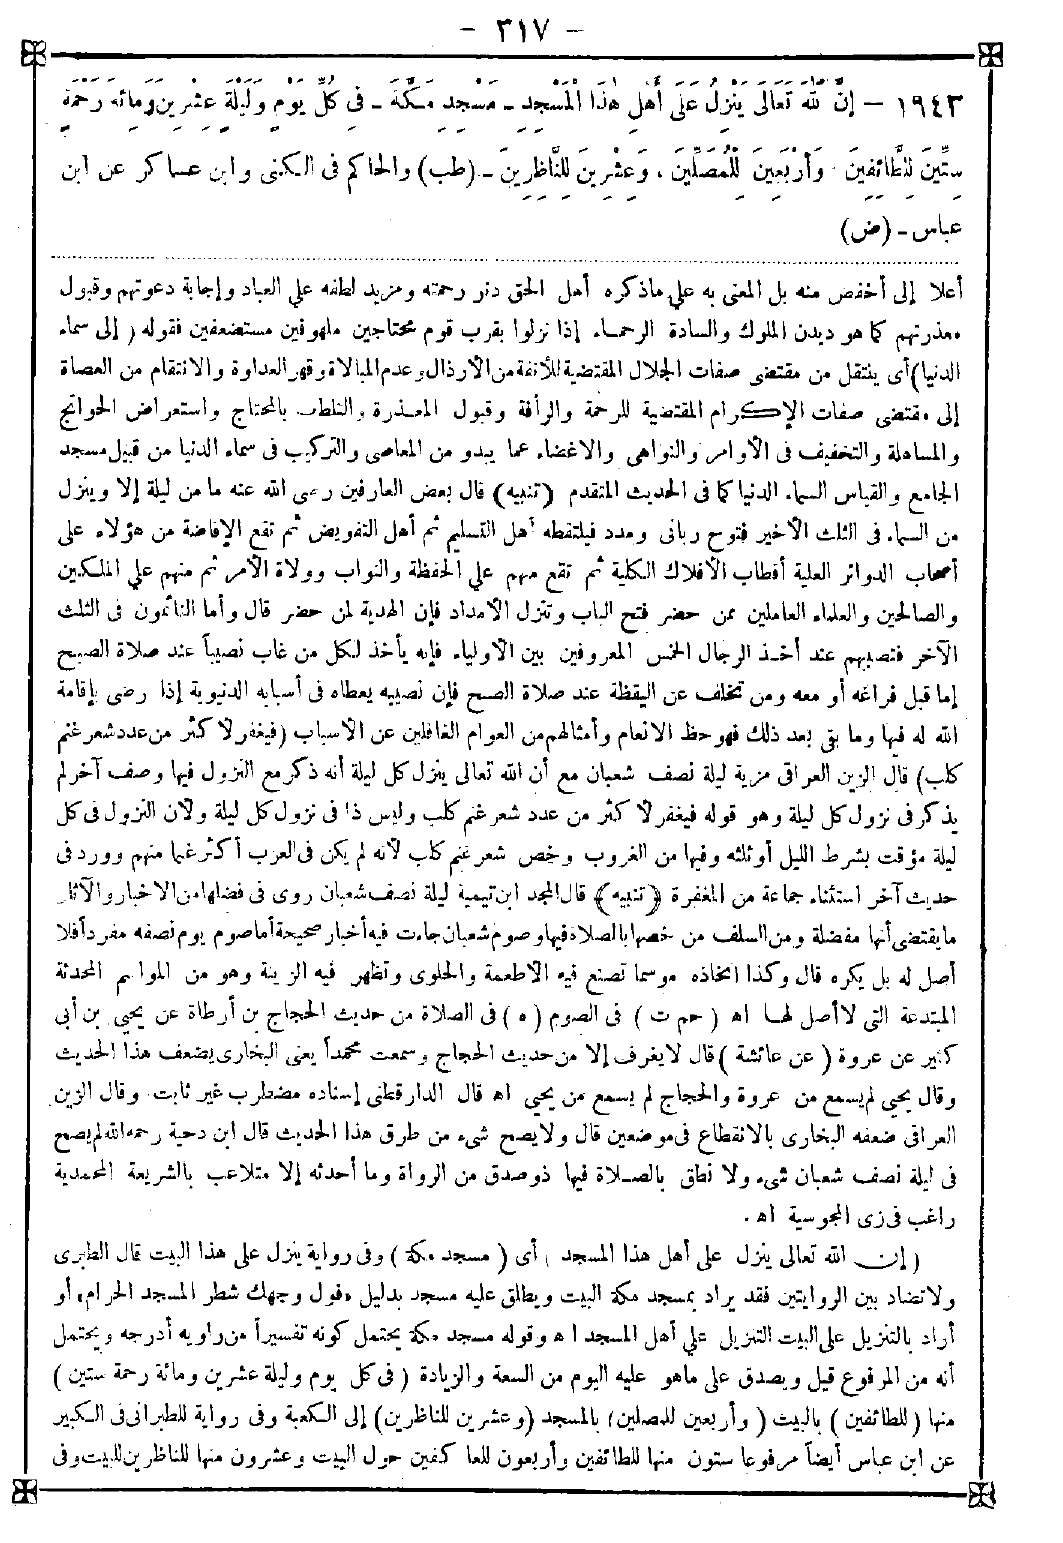 - ٣١٧ -
١٩٤٣ - إِنَّ اللهَ تَعَالَى يَنْزِلُ عَلَى أَهْلِ هٰذَا الْمَسْجِدِ - مَسْجِدِ مَكَّةَ - فِي كُلِّ يَوْمٍ وَلَيْلَةٍ عِشْرِينَ وَمِائَةَ رَحْمَةٍ
سِتِّينَ لِلطَّائِفِينَ، وَأَرْبَعِينَ لِلْمُصَلِّينَ، وَعِشْرِينَ لِلنَّاظِرِينَ - (طب) والحاكم فى الكنى وابن عساكر عن ابن
عباس - (ض)
أعلا إلى أخفض منه بل المعنى به على ماذكره أهل الحق دنو رحمته ومزيد لطفه على العباد وإجابة دعوتهم وقبول
معذرتهم كما هو ديدن الملوك والسادة الرحماء إذا نزلوا بقرب قوم محتاجين ملهوفين مستضعفين فقوله (إلى سماء
الدنيا) أى ينتقل من مقتضى صفات الجلال المقتضية للأنفة من الأرذال وعدم المبالاة وقهر العداوة والانتقام من العصاة
إلى مقتضى صفات الإكرام المقتضية للرحمة والرأفة وقبول المعذرة والتلطف بالمحتاج واستعراض الحوائج
والمساهلة والتخفيف فى الأوامر والنواهى والاغضاء عما يبدو من المعاصى والتركيب فى سماء الدنيا من قبيل مسجد
الجامع والقياس السماء الدنيا كما فى الحديث المتقدم (تنبيه) قال بعض العارفين رضى الله عنه ما من ليلة إلا وينزل
من السماء فى الثلث الأخير فتوح ربانى ومدد فيلتقطه أهل التسليم ثم أهل التفويض ثم تقع الإفاضة من هؤلاء على
أصحاب الدوائر العلية أقطاب الأفلاك الكلية ثم تقع منهم على الحفظة والنواب وولاة الأمر ثم منهم على الملكين
والصالحين والعلماء العاملين ممن حضر فتح الباب وتنزل الأمداد فإن الهدية لمن حضر قال وأما النائمون فى الثلث
الآخر فنصيبهم عند أخذ الرجال الخمس المعروفين بين الأولياء فإنه يأخذ لكل من غاب نصيباً عند صلاة الصبح
إما قبل فراغه أو معه ومن تخلف عن اليقظة عند صلاة الصبح فإن نصيبه يعطاه فى أسبابه الدنيوية إذا رضى بإقامة
الله له فيها وما بقى بعد ذلك فهو حظ الانعام وأمثالهم من العوام الغافلين عن الأسباب (فيغفر لأكثر من عدد شعر غنم
كلب) قال الزين العراقى مزية ليلة نصف شعبان مع أن الله تعالى ينزل كل ليلة أنه ذكر مع النزول فيها وصف آخر لم
يذكر فى نزول كل ليلة وهو قوله فيغفر لأكثر من عدد شعر غنم كلب وليس ذا فى نزول كل ليلة ولأن النزول فى كل
ليلة مؤقت بشرط الليل أو ثلثه وفيها من الغروب وخص شعر غنم كلب لأنه لم يكن فى العرب أكثر غما منهم وورد فى
حديث آخر استثناء جماعة من المغفرة (تنبيه) قال المجد ابن تيمية ليلة نصف شعبان روى فى فضلها من الاخبار والآثار
ما يقتضى أنها مفضلة ومن السلف من خصها بالصلاة فيها وصوم شعبان جاءت فيه أخبار صحيحة أما صوم يوم نصفه مفرداً فلا
أصل له بل يكره قال وكذا اتخاذه موسما تصنع فيه الأطعمة والحلوى وتظهر فيه الزينة وهو من المواسم المحدثة
المبتدعة التى لا أصل لها اه (حم ت) فى الصوم (ه) فى الصلاة من حديث الحجاج بن أرطاة عن يحيى بن أبى
كثير عن عروة (عن عائشة) قال لا يعرف إلا من حديث الحجاج وسمعت محمداً يعنى البخارى يضعف هذا الحديث
وقال يحيى لم يسمع من عروة والحجاج لم يسمع من يحيى اه قال الدارقطنى إسناده مضطرب غير ثابت وقال الزين
العراقى ضعفه البخارى بالانقطاع فى موضعين قال ولا يصح شىء من طرق هذا الحديث قال ابن دحية رحمه الله لم يصح
فى ليلة نصف شعبان شىء ولا نطق بالصلاة فيها ذو صدق من الرواة وما أحدثه إلا متلاعب بالشريعة المحمدية
راغب فى زى المجوسية اه.
(إن الله تعالى ينزل على أهل هذا المسجد) أى (مسجد مكة) وفى رواية ينزل على هذا البيت قال الطبرى
ولا تضاد بين الروايتين فقد يراد بمسجد مكة البيت ويطلق عليه مسجد بدليل «فول وجهك شطر المسجد الحرام» أو
أراد بالتنزيل على البيت التنزيل على أهل المسجد اه وقوله مسجد مكة يحتمل كونه تفسيراً من راويه أدرجه ويحتمل
أنه من المرفوع قيل ويصدق على ماهو عليه اليوم من السعة والزيادة (فى كل يوم وليلة عشرين ومائة رحمة ستين)
منها (للطائفين) بالبيت (وأربعين للمصلين) بالمسجد (وعشرين للناظرين) إلى الكعبة وفى رواية للطبرانى فى الكبير
عن ابن عباس أيضاً مرفوعا ستون منها للطائفين وأربعون للعاكفين حول البيت وعشرون منها للناظرين للبيت وفى